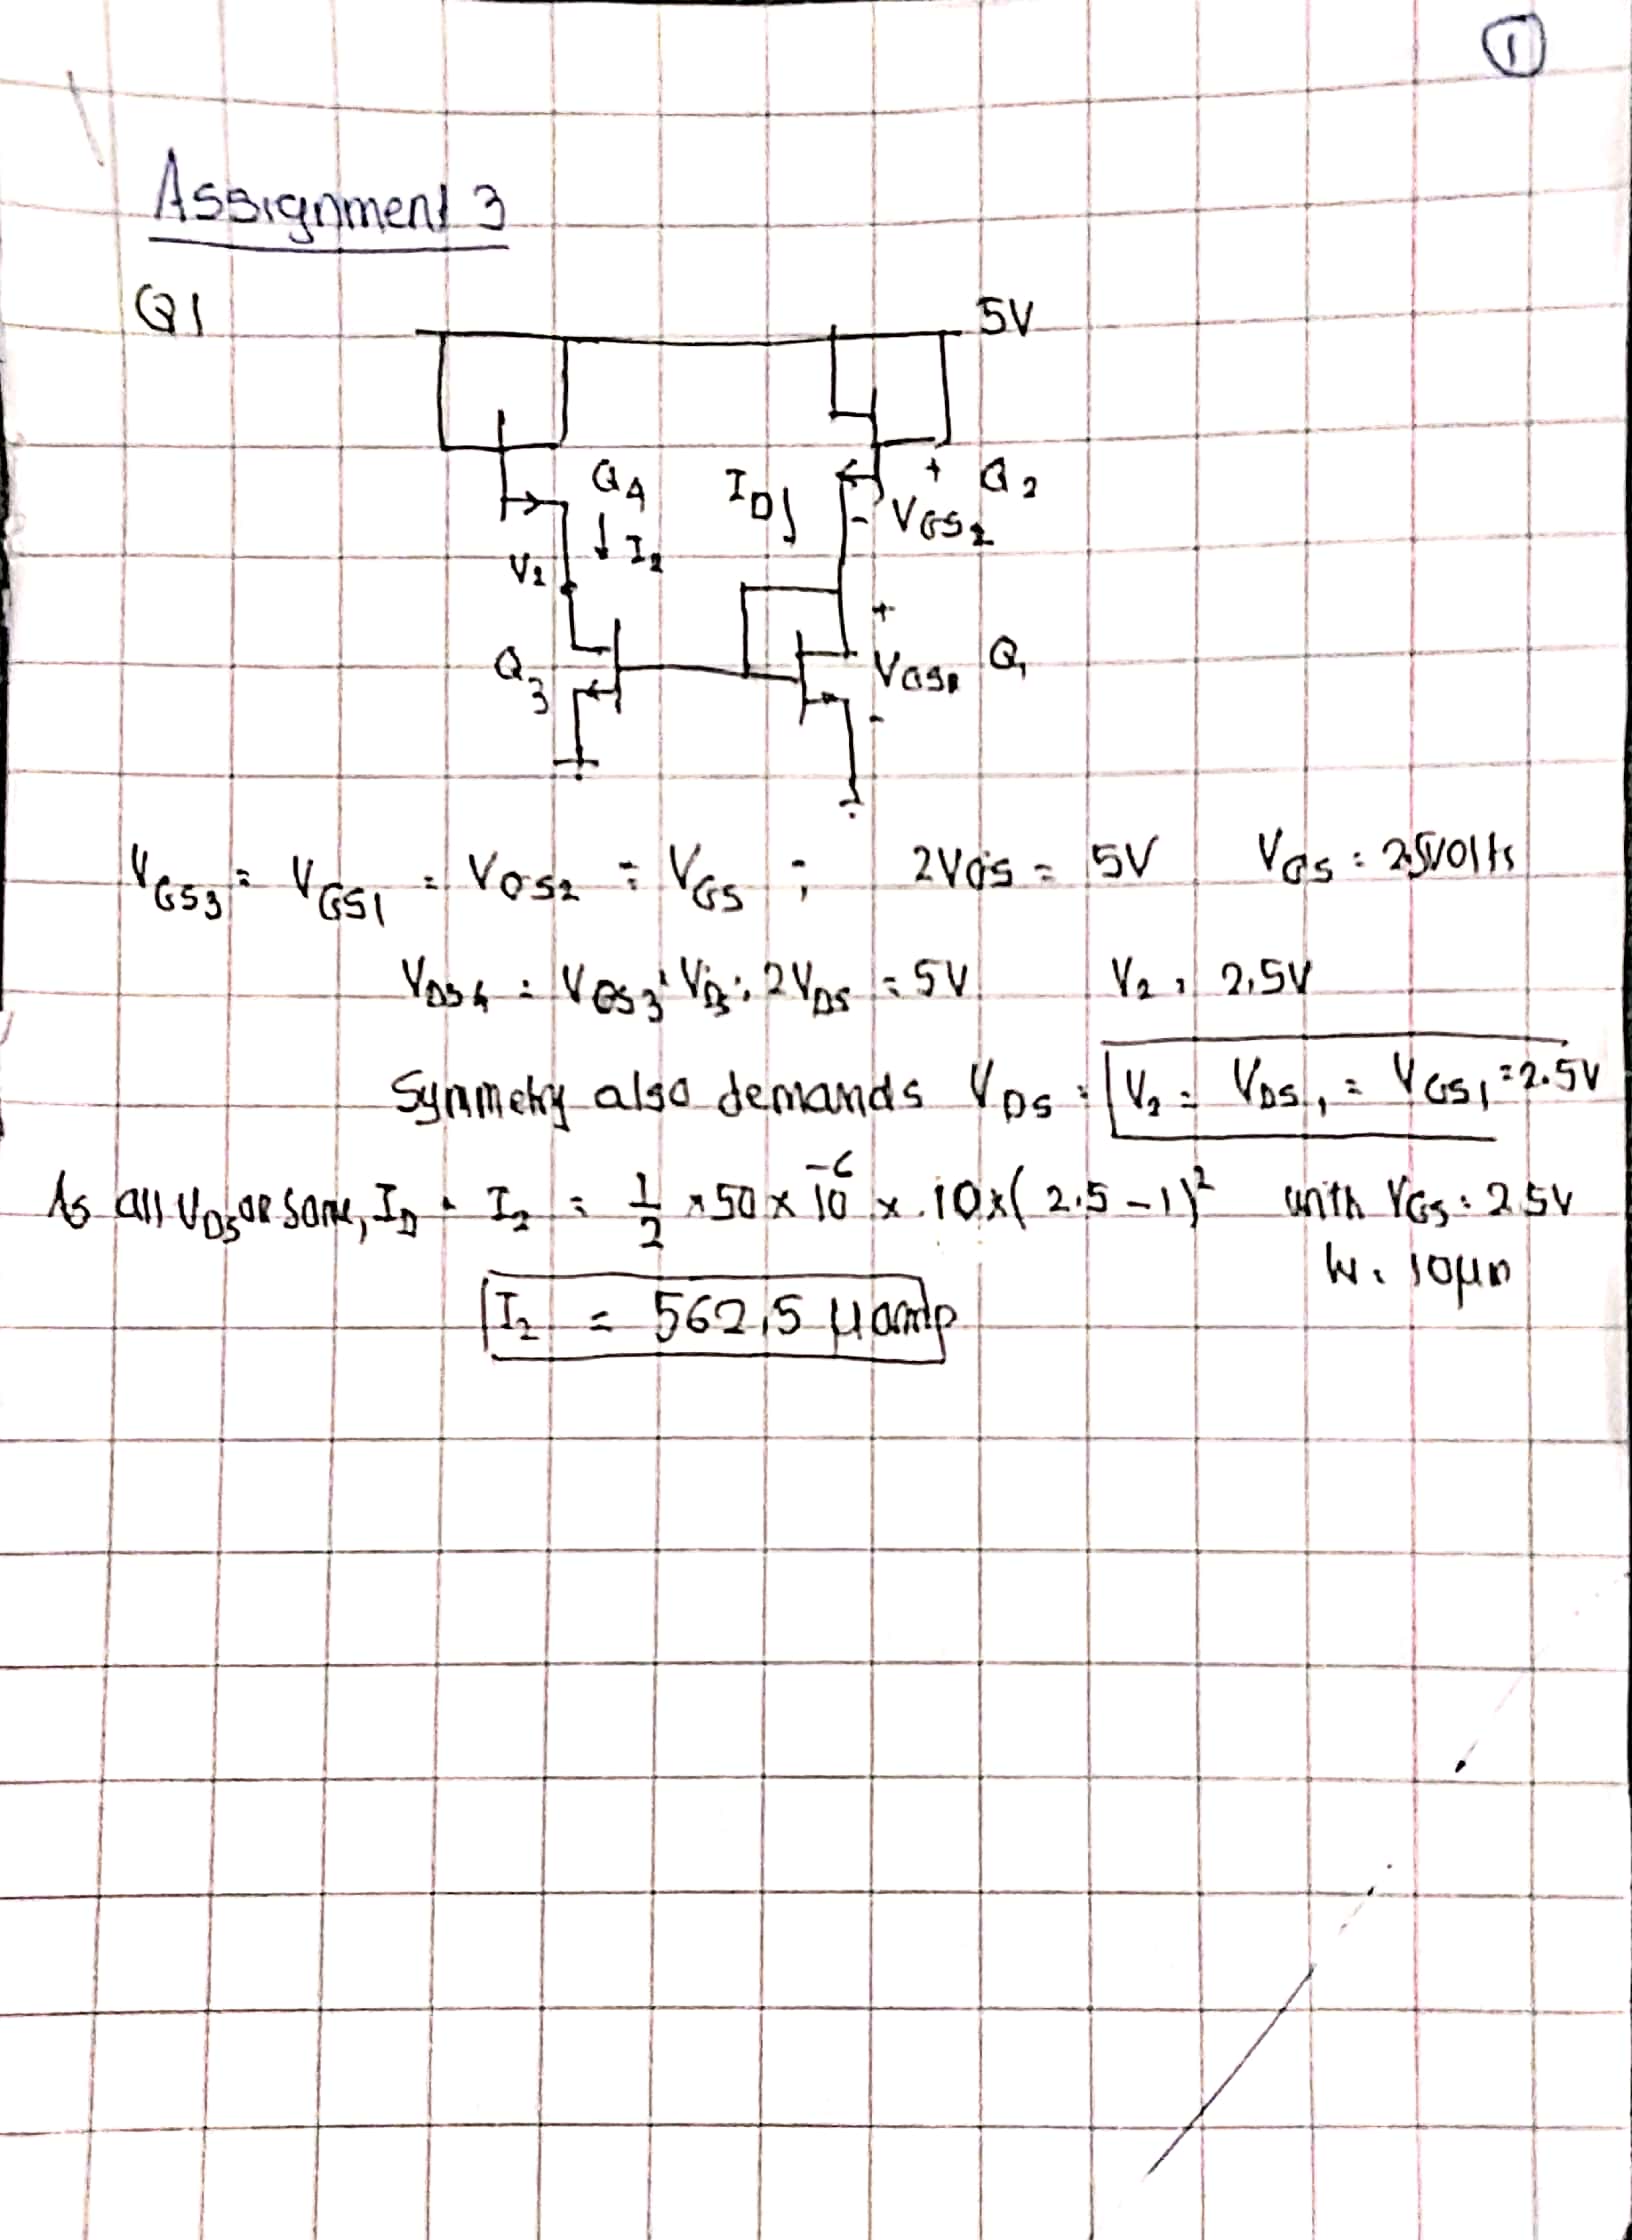 1
Assignment 3
Q1
5V
Q4
ID
+ Q2
I2
- VGS2
V2
+
Q3
VGS1 Q1
-
VGS3 = VGS1 = VGS2 = VGS ; 2VGS = 5V VGS = 2.5Volts
VDS4 = VDS3 = VDS ; 2VDS = 5V V2 = 2.5V
Symmetry also demands VDS = V2 = VDS1 = VGS1 = 2.5V
As all VDS are same, ID = I2 = 1/2 × 50 × 10^-6 × 10 × (2.5 - 1)^2 with VGS = 2.5V
W = 10μm
I2 = 562.5 μamp